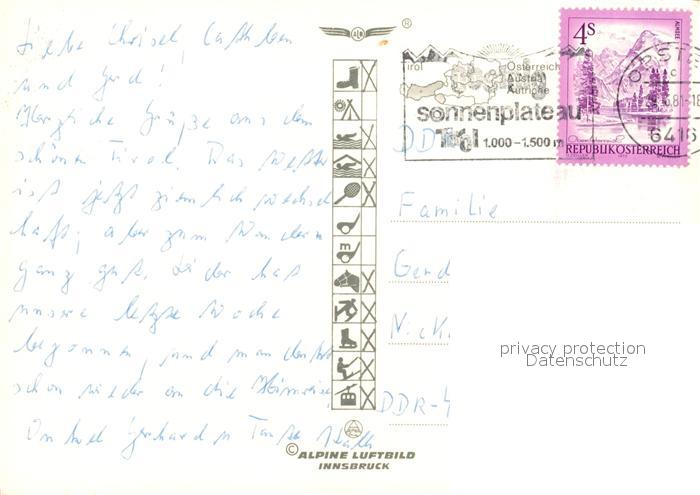 Liebe Christel, Cathleen
und Gerd!
Herzliche Grüße aus dem
schönen Tirol. Das Wetter
ist jetzt ziemlich wechsel
haft; aber zum Wandern
ganz gut. Leider hat
unsere letzte Woche
begonnen, und man denkt
schon wieder an die Heimreise
Onkel Gerhard u Tante
®
Tirol
Österreich
Austria
Autriche
sonnenplateau
Tirol 1.000 – 1.500 m
4S
ALMSEE
REPUBLIK ÖSTERREICH
6416
DDR
Familie
Gerd
DDR-4
m
privacy protection
Datenschutz
© ALPINE LUFTBILD
INNSBRUCK